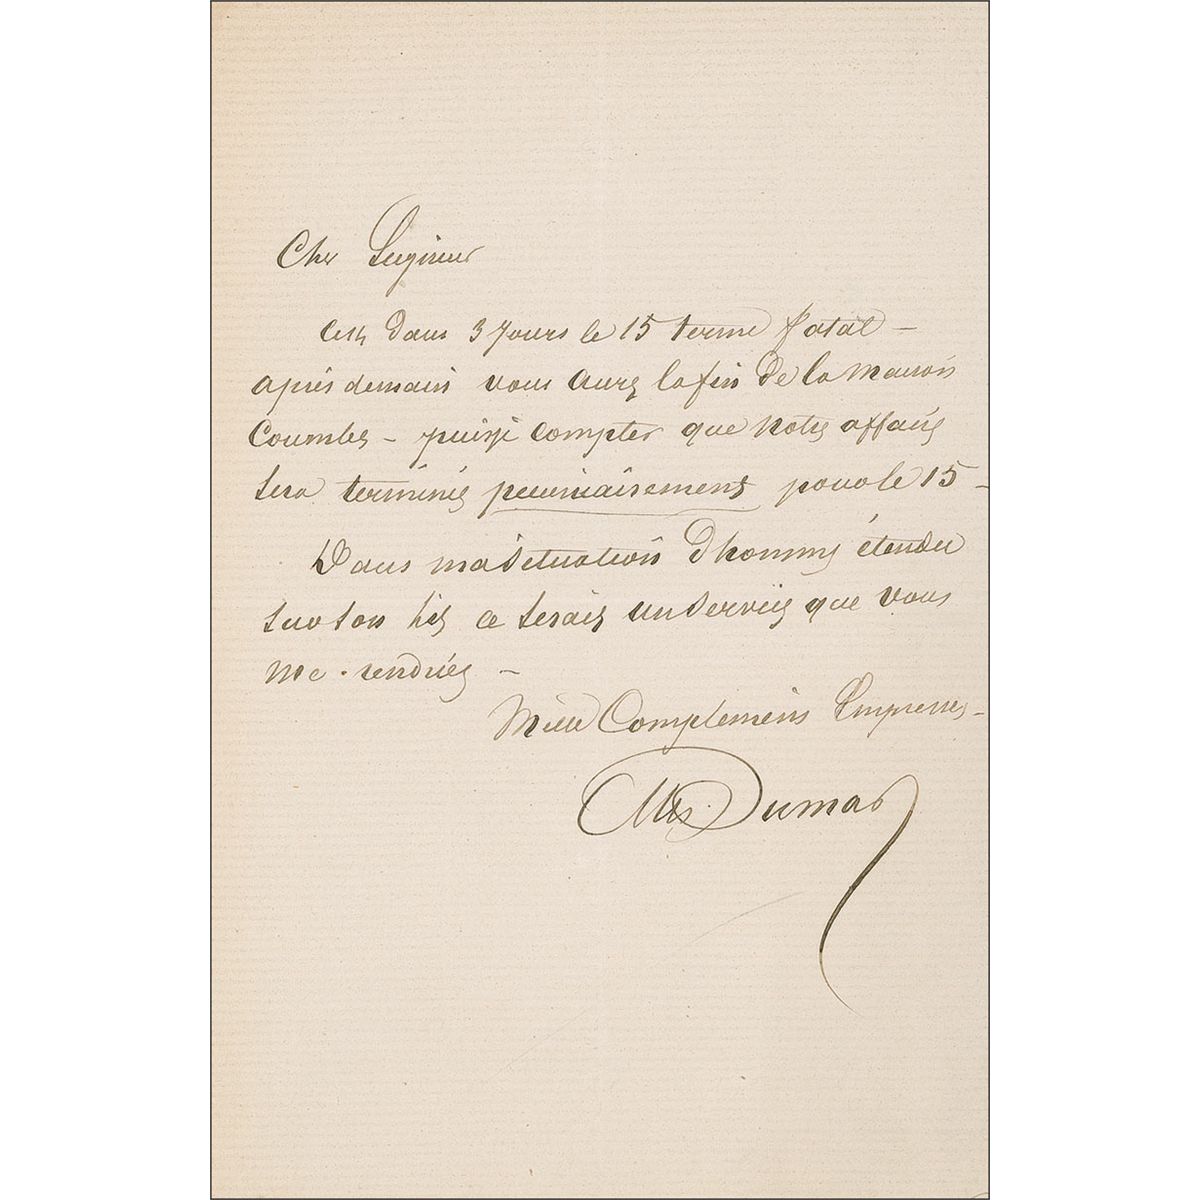 Cher Seigneur
C'est dans 3 jours le 15 terme fatal —
après demain vous aurez la fin de la Maison
Coumbes — puis je compter que notre affaire
sera terminée pecuniairement pour le 15 —
Dans ma situation d'homme étendu
sur son lit ce serait un service que vous
me rendriez —
Mille Complemens Empressés —
Alex Dumas